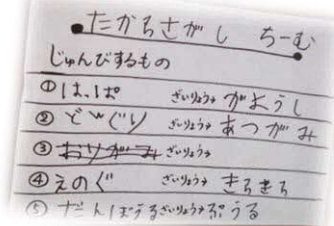 たからさがし ちーむ
じゅんびするもの
① はっぱ ざいりょう→ がようし
② どんぐり ざいりょう→ あつがみ
③ おりがみ ざいりょう→
④ えのぐ ざいりょう→ きらきら
⑤ だんぼうる ざいりょう→ ぷうる